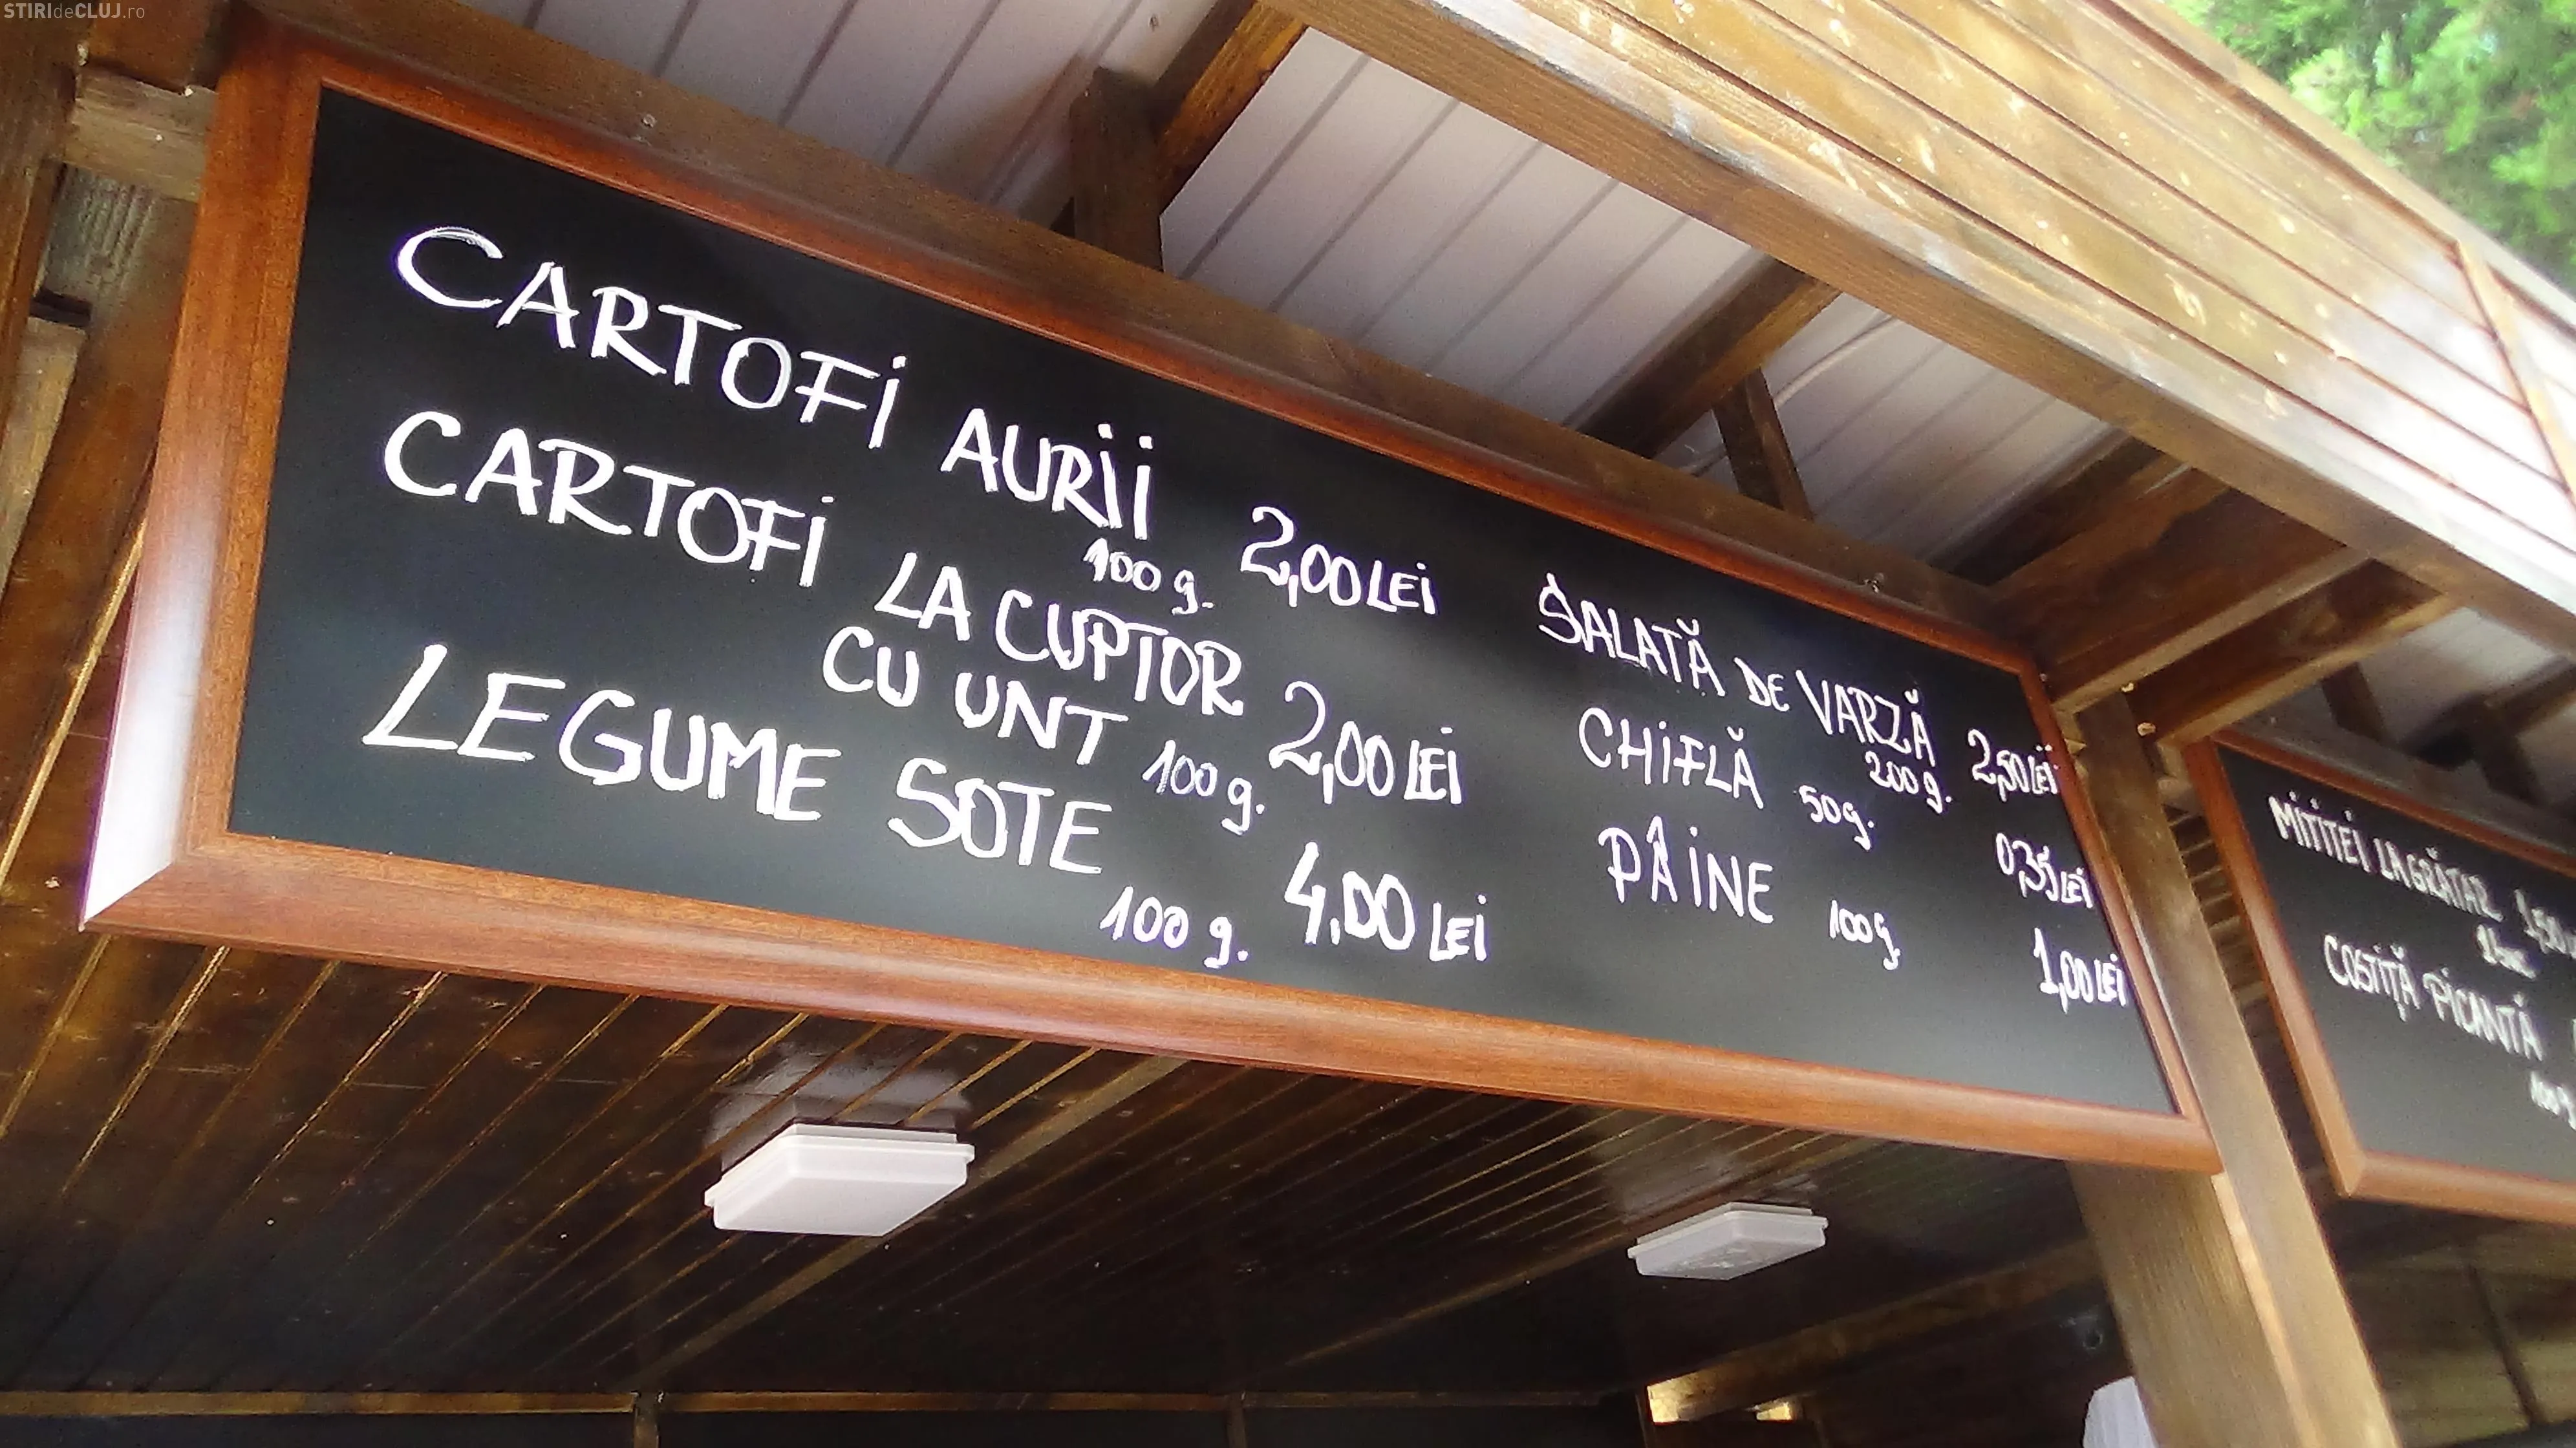 STIRIdeCLUJ.ro
CARTOFI AURII
100 g. 2,00 LEI
CARTOFI LA CUPTOR
CU UNT 100 g. 2,00 LEI
LEGUME SOTE
100 g. 4,00 LEI
SALATĂ DE VARZĂ
200 g. 2,50 LEI
CHIFLĂ 50g. 0,35 LEI
PÂINE 100g. 1,00 LEI
MITITEI LA GRĂTAR
COSTIȚĂ PICANTĂ
100 g